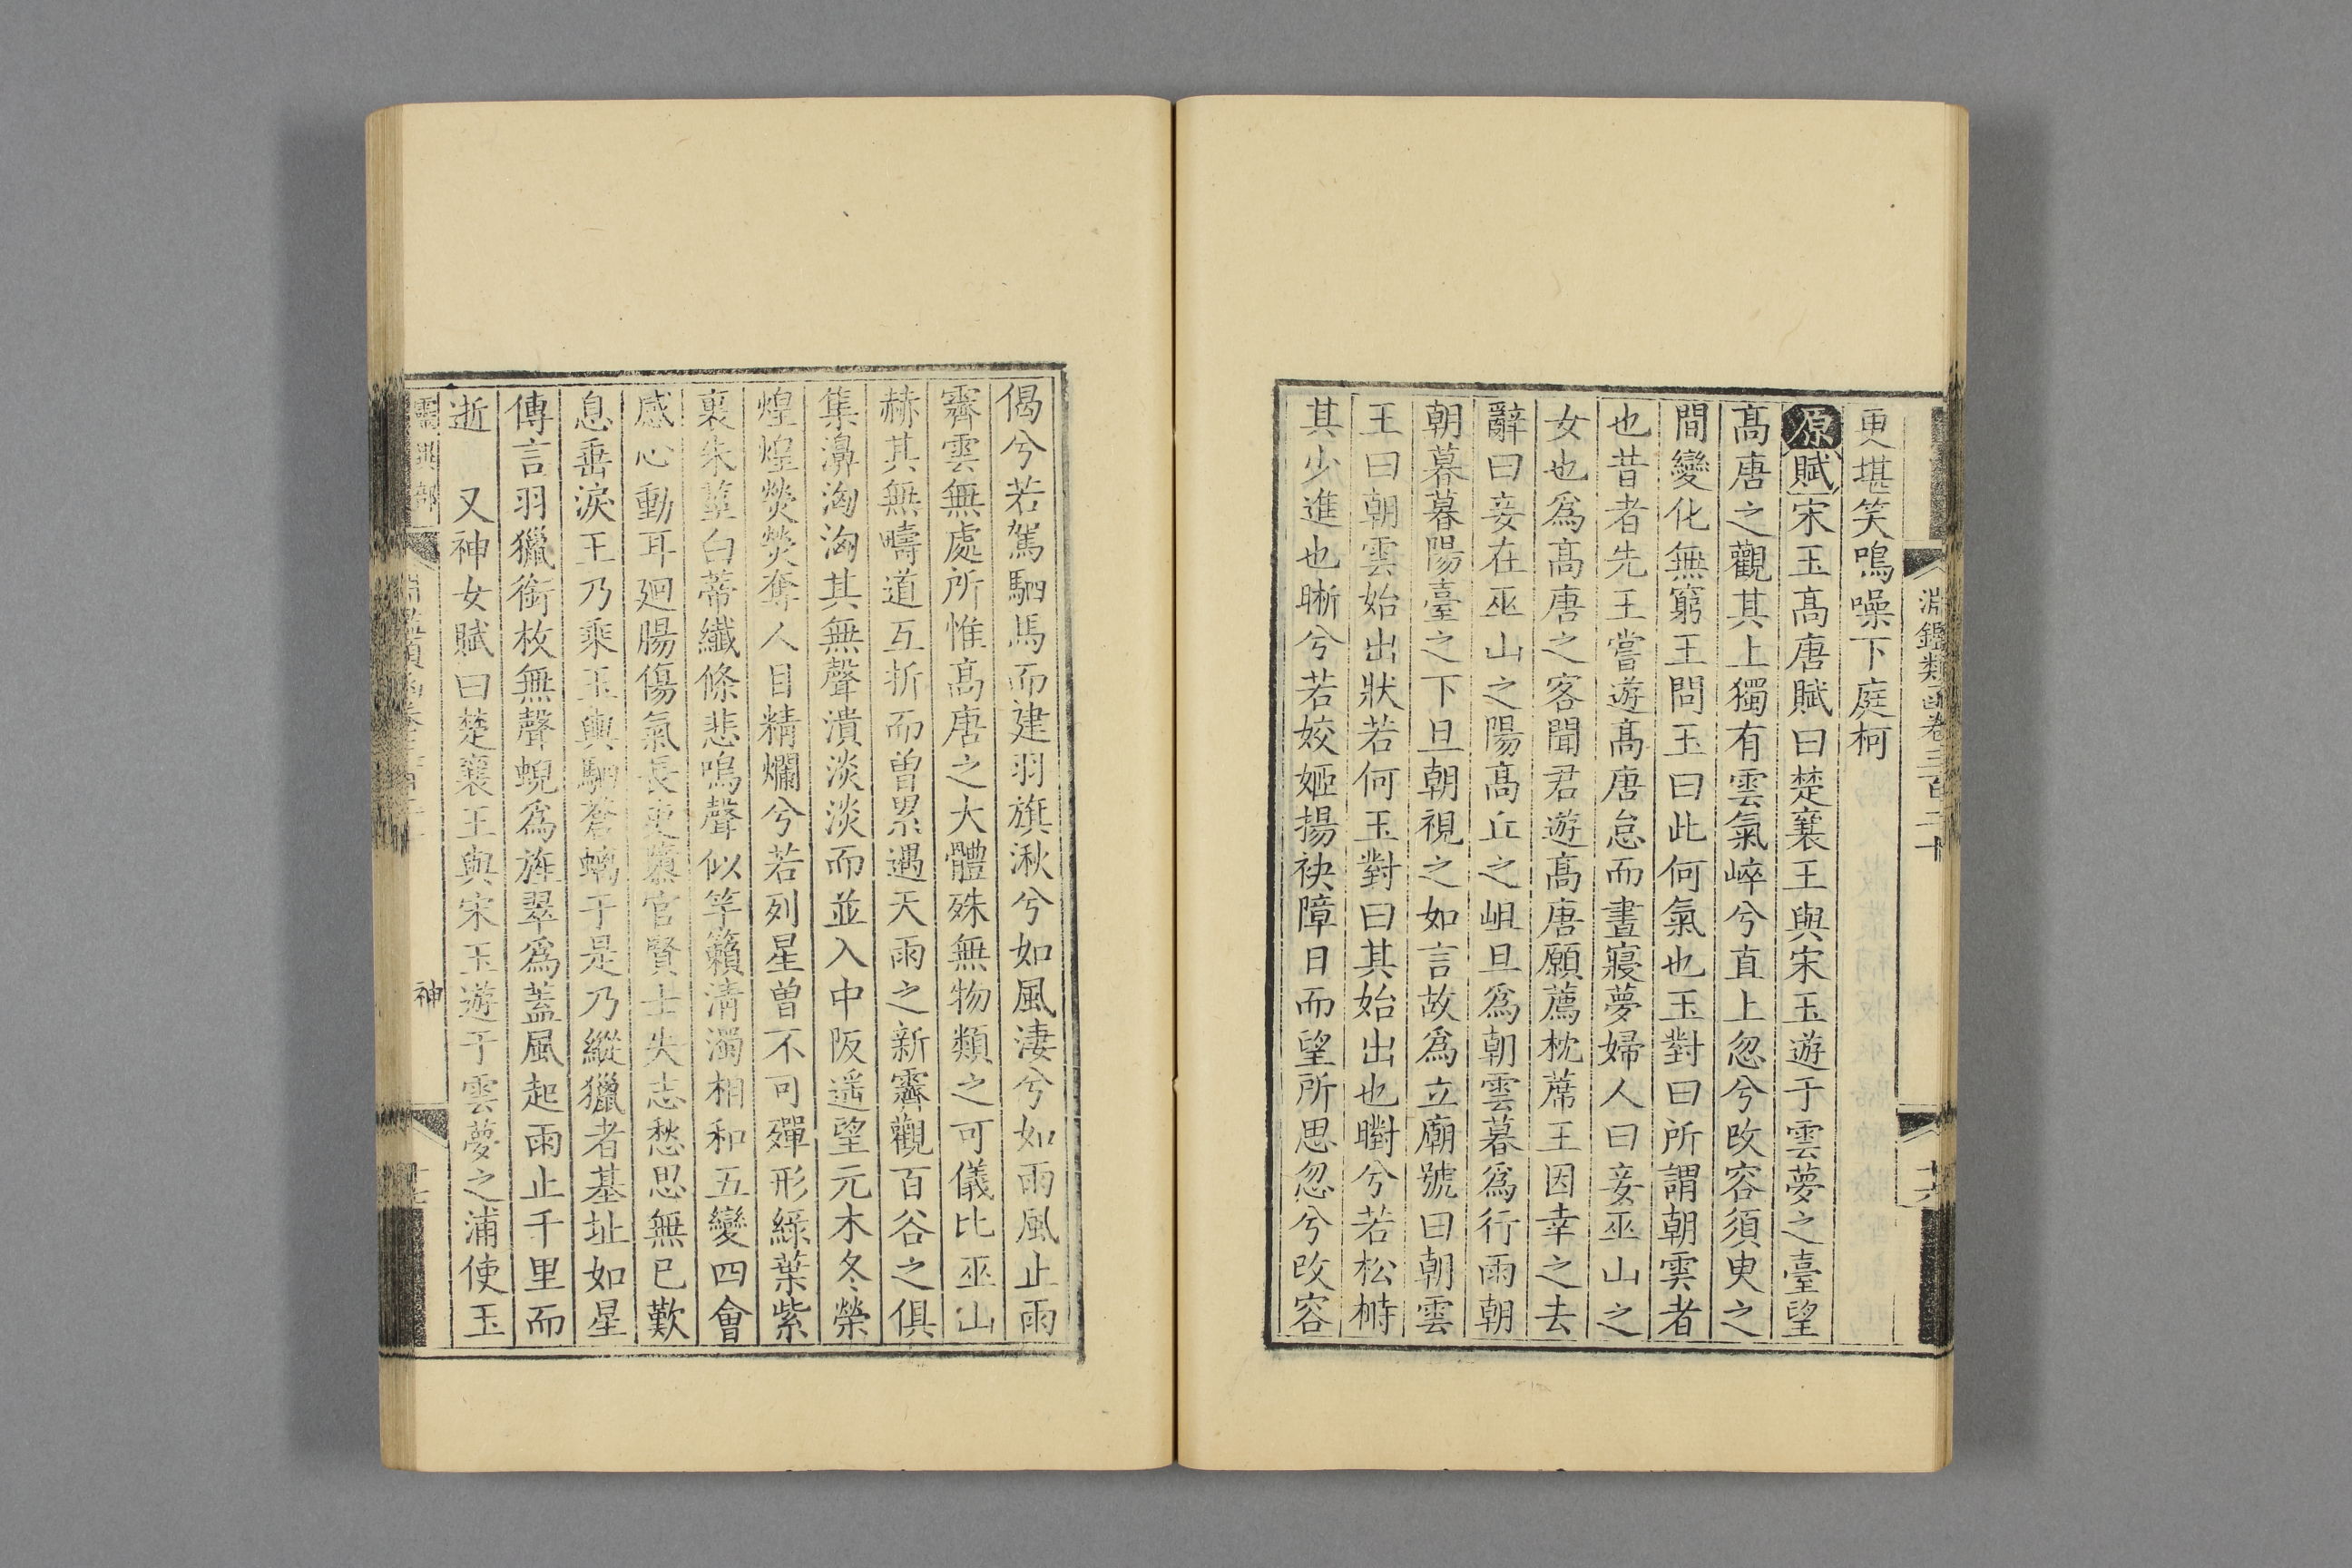 淵鑑類函卷三百二十
更堪笑鳴噪下庭柯
原賦宋玉髙唐賦曰楚襄王與宋玉遊于雲夢之臺望
髙唐之觀其上獨有雲氣崪兮直上忽兮改容須臾之
間變化無窮王問玉曰此何氣也玉對曰所謂朝雲者
也昔者先王嘗遊髙唐怠而晝寢夢婦人曰妾巫山之
女也爲髙唐之客聞君遊髙唐願薦枕蓆王因幸之去
辭曰妾在巫山之陽髙丘之岨旦爲朝雲暮爲行雨朝
朝暮暮陽臺之下旦朝視之如言故爲立廟號曰朝雲
王曰朝雲始出狀若何玉對曰其始出也㬣兮若松榯
其少進也晰兮若姣姬揚袂障日而望所思忽兮改容
偈兮若駕駟馬而建羽旗湫兮如風淒兮如雨風止雨
霽雲無處所惟髙唐之大體殊無物類之可儀比巫山
赫其無疇道互折而曾累遇天雨之新霽觀百谷之俱
集濞洶洶其無聲潰淡淡而並入中阪遥望元木冬榮
煌煌熒熒奪人目精爛兮若列星曾不可殫形綠葉紫
裹朱莖白蒂纖條悲鳴聲似竽籟清濁相和五變四會
感心動耳廻腸傷氣長吏隳官賢士失志愁思無已歎
息垂淚王乃乘玉輿駟蒼螭于是乃縱獵者基址如星
傳言羽獵銜枚無聲蜺爲旌翠爲蓋風起雨止千里而
逝　又神女賦曰楚襄王與宋玉遊于雲夢之浦使玉
神